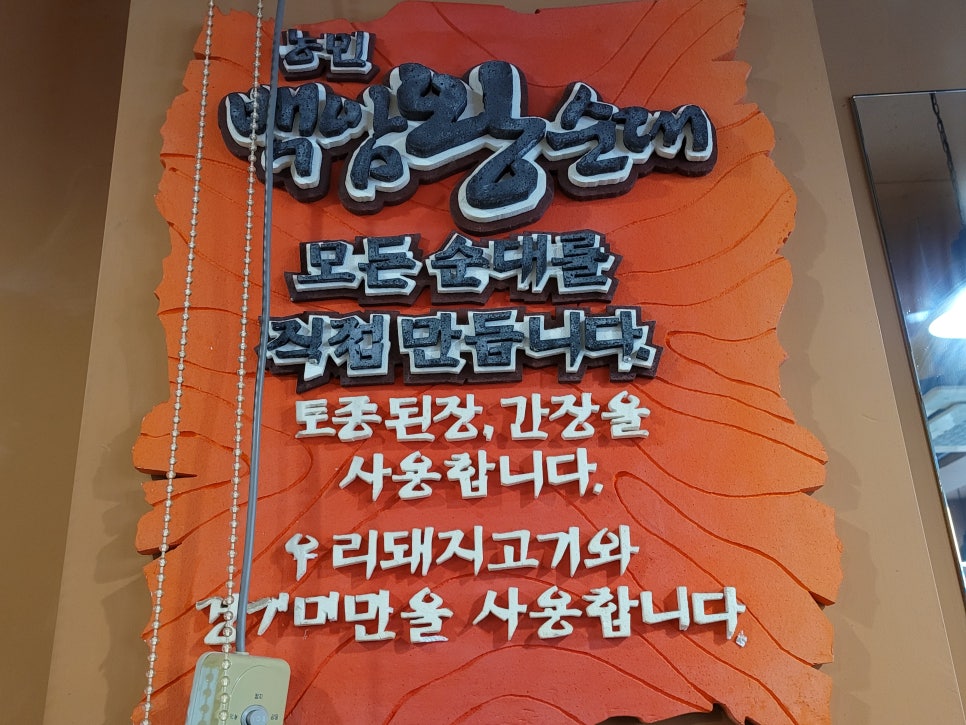 농민
백암왕순대
모든 순대를
직접 만듭니다.
토종된장, 간장을
사용합니다.
우리돼지고기와
경기미만을 사용합니다.